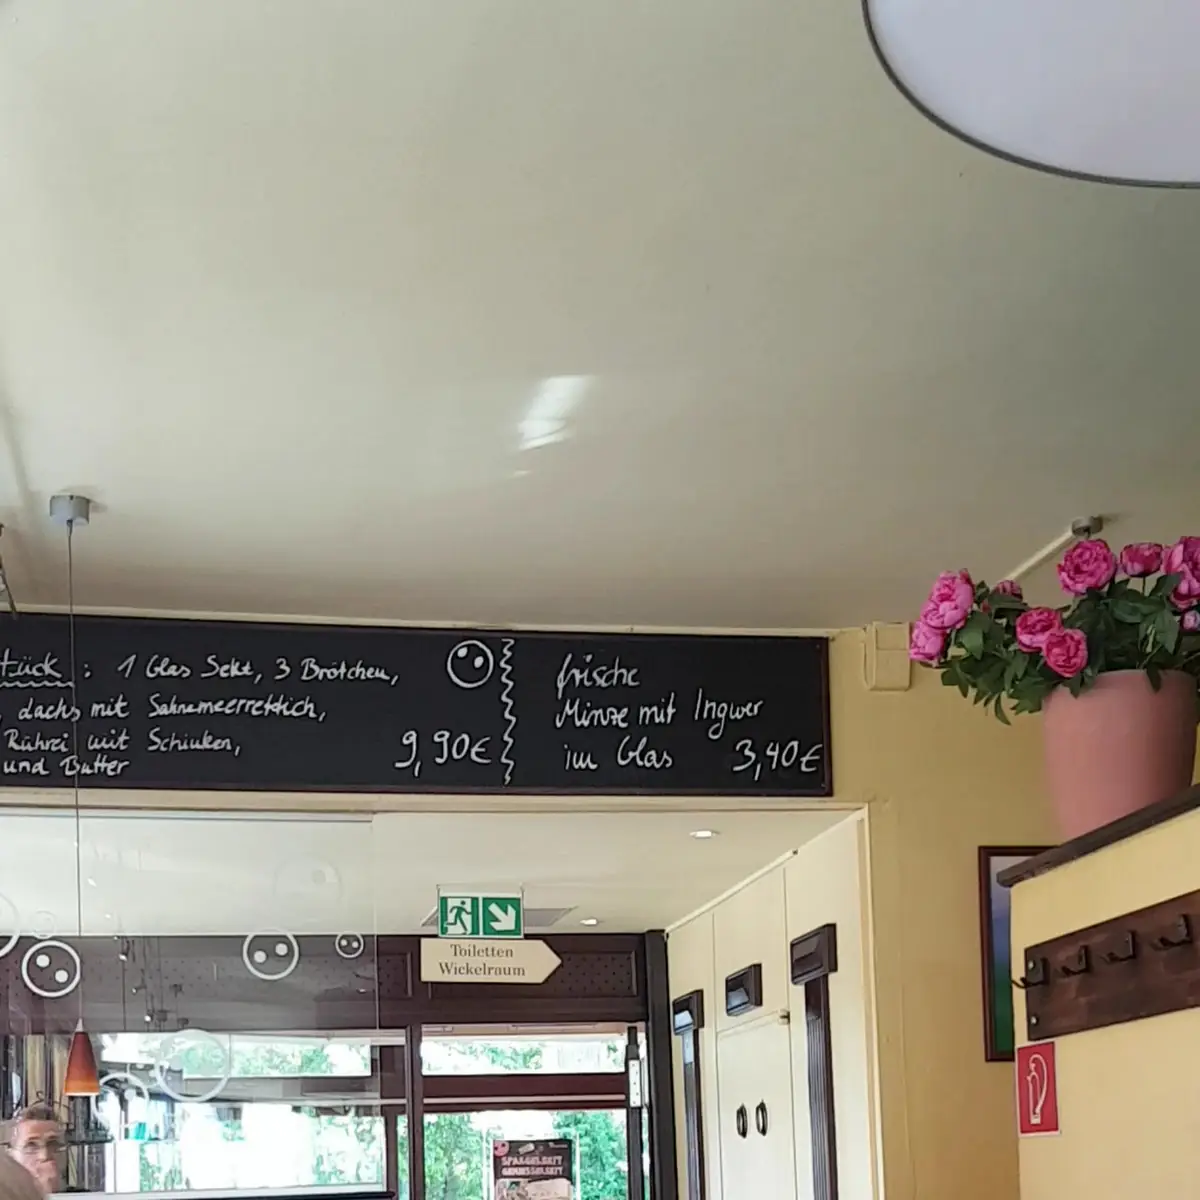 tück : 1 Glas Sekt, 3 Brötchen,
, dachs mit Sahnemeerrettich,
Rührei mit Schinken,
und Butter
9,90€
frische
Minze mit Ingwer
im Glas 3,40€
Toiletten
Wickelraum
SPARGELZEIT
GENUSSZEIT